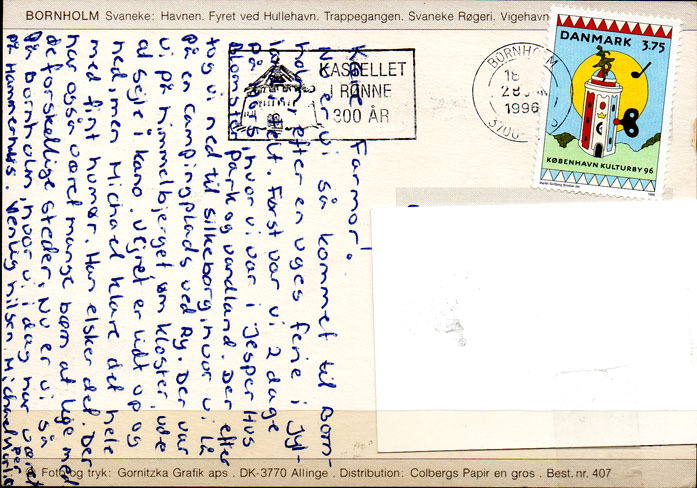 BORNHOLM Svaneke: Havnen. Fyret ved Hullehavn. Trappegangen. Svaneke Røgeri. Vigehavn
KASTELLET
I RØNNE
300 ÅR
BORNHOLM
18
28
1996
3700
DANMARK 3.75
KØBENHAVN KULTURBY 96
Kære Farmor!
Nu er vi så kommet til Born-
holm, efter en uges ferie i Jyl-
land i telt. Først var vi 2 dage
på Mors, hvor vi var i Jesperhus
Blomster Park og vandland. Der efter
tog vi ned til Silkeborg, hvor vi lå
på en campingplads ved Ry. Der var
vi på Himmelbjerget, Øm kloster, ude
at sejle i kano. Vejret er lidt op og
ned men Michael klare det hele
med fint humør. Han elsker det. Der
har også været mange børn at lege med
de forskellige steder. Nu er vi så
på Bornholm, hvor vi i dag har været
på Hammershus. Venlig hilsen Michael Per
Foto og tryk: Gornitzka Grafik aps . DK-3770 Allinge . Distribution: Colbergs Papir en gros . Best. nr. 407